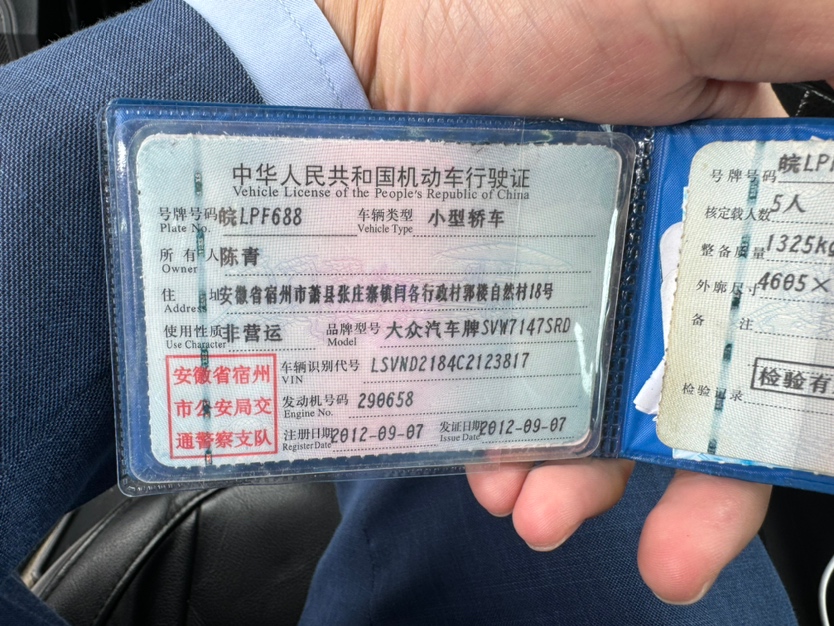 中华人民共和国机动车行驶证
Vehicle License of the People's Republic of China
号牌号码 皖LPF688 车辆类型 小型轿车
Plate No. Vehicle Type
所有人 陈青
Owner
住址 安徽省宿州市萧县张庄寨镇闫各行政村郭楼自然村18号
Address
使用性质 非营运 品牌型号 大众汽车牌SVW7147SRD
Use Character Model
安徽省宿州
市公安局交
通警察支队
车辆识别代号 LSVND2184C2123817
VIN
发动机号码 290658
Engine No.
注册日期 2012-09-07 发证日期 2012-09-07
Register Date Issue Date
号牌号码 皖LPF
核定载人数 5人
整备质量 1325kg
外廓尺寸 4605×
备注
检验记录 检验有